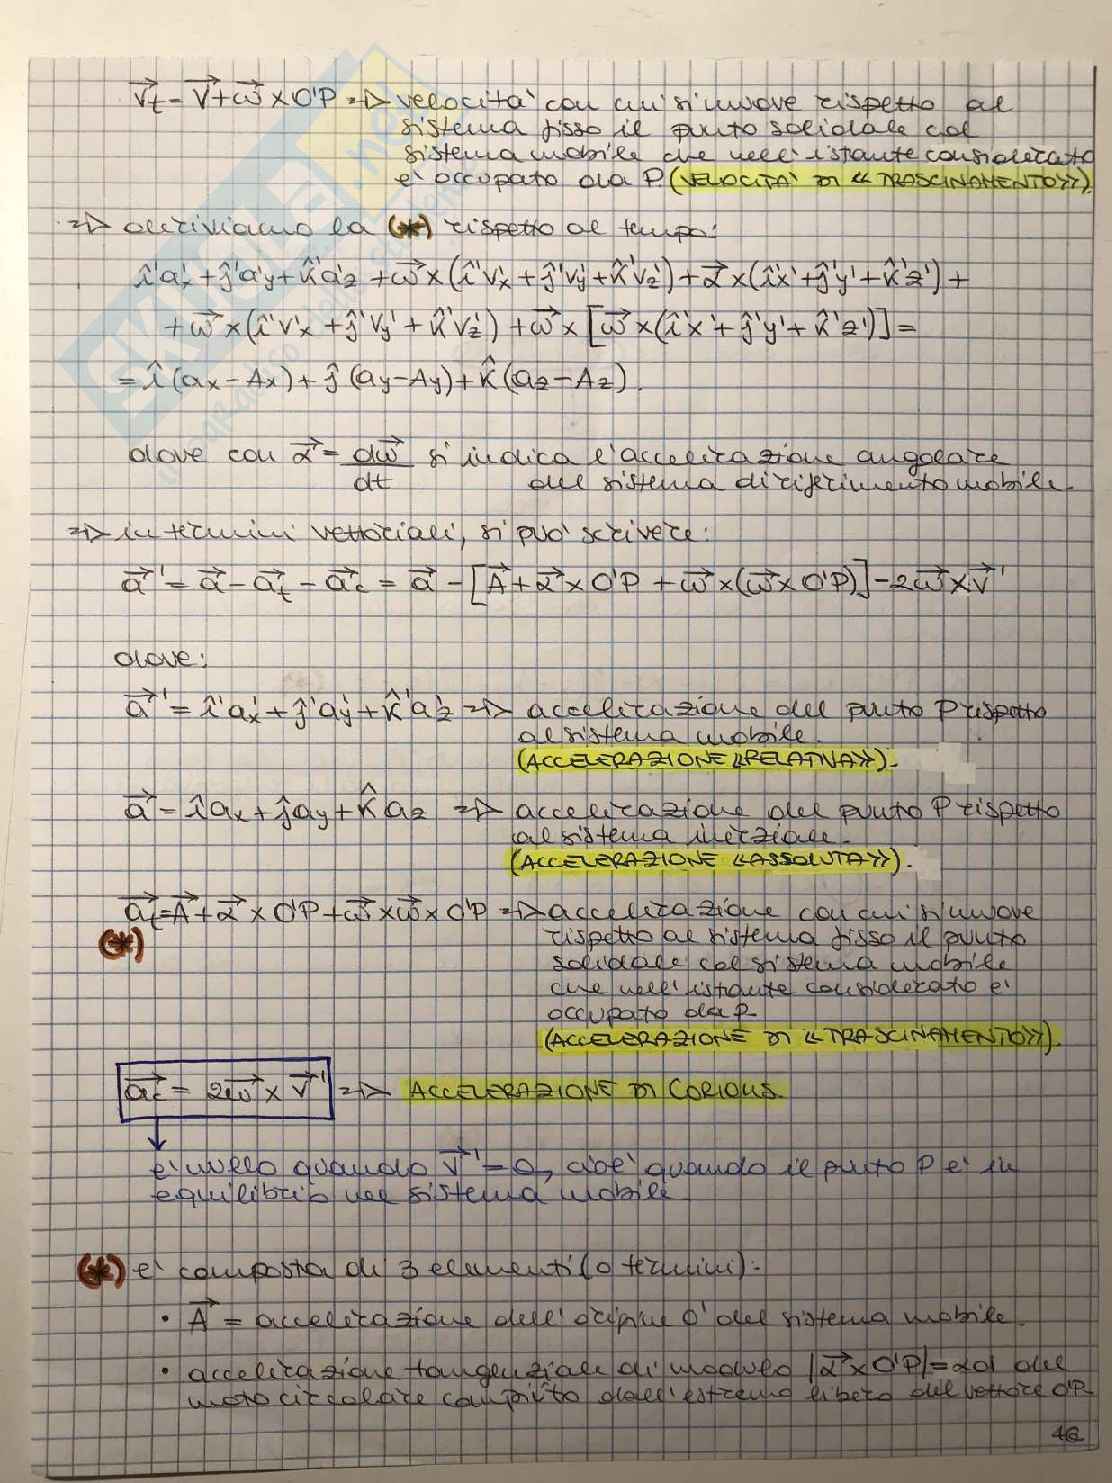 v⃗t = V⃗ + ω⃗ × O'P => velocità con cui si muove rispetto al
sistema fisso il punto solidale col
sistema mobile che nell'istante considerato
è occupato da P (VELOCITA' DI «TRASCINAMENTO»).
=> deriviamo la (*) rispetto al tempo:
î'a'x + ĵ'a'y + k̂'a'z + ω⃗ × (î'v'x + ĵ'v'y + k̂'v'z) + α⃗ × (î'x' + ĵ'y' + k̂'z') +
+ ω⃗ × (î'v'x + ĵ'v'y + k̂'v'z) + ω⃗ × [ω⃗ × (î'x' + ĵ'y' + k̂'z')] =
= î(ax - Ax) + ĵ(ay - Ay) + k̂(az - Az).
dove con α⃗ = dω⃗/dt si indica l'accelerazione angolare
del sistema di riferimento mobile.
=> in termini vettoriali, si può scrivere:
a⃗' = a⃗ - a⃗t - a⃗c = a⃗ - [A⃗ + α⃗ × O'P + ω⃗ × (ω⃗ × O'P)] - 2ω⃗ × v⃗'
dove:
a⃗' = î'a'x + ĵ'a'y + k̂'a'z => accelerazione del punto P rispetto
al sistema mobile.
(ACCELERAZIONE «RELATIVA»).
a⃗ = îax + ĵay + k̂az => accelerazione del punto P rispetto
al sistema inerziale.
(ACCELERAZIONE «ASSOLUTA»).
a⃗t = A⃗ + α⃗ × O'P + ω⃗ × ω⃗ × O'P => accelerazione con cui si muove
(*) rispetto al sistema fisso il punto
solidale col sistema mobile
che nell'istante considerato è
occupato da P.
(ACCELERAZIONE DI «TRASCINAMENTO»).
a⃗c = 2ω⃗ × v⃗' => ACCELERAZIONE DI CORIOLIS.
è nullo quando v⃗' = 0, cioè quando il punto P è in
equilibrio nel sistema mobile
(*) è composta di 3 elementi (o termini):
• A⃗ = accelerazione dell'origine O' del sistema mobile.
• accelerazione tangenziale di modulo |α⃗ × O'P| = αd del
moto circolare compiuto dall'estremo libero del vettore O'P.